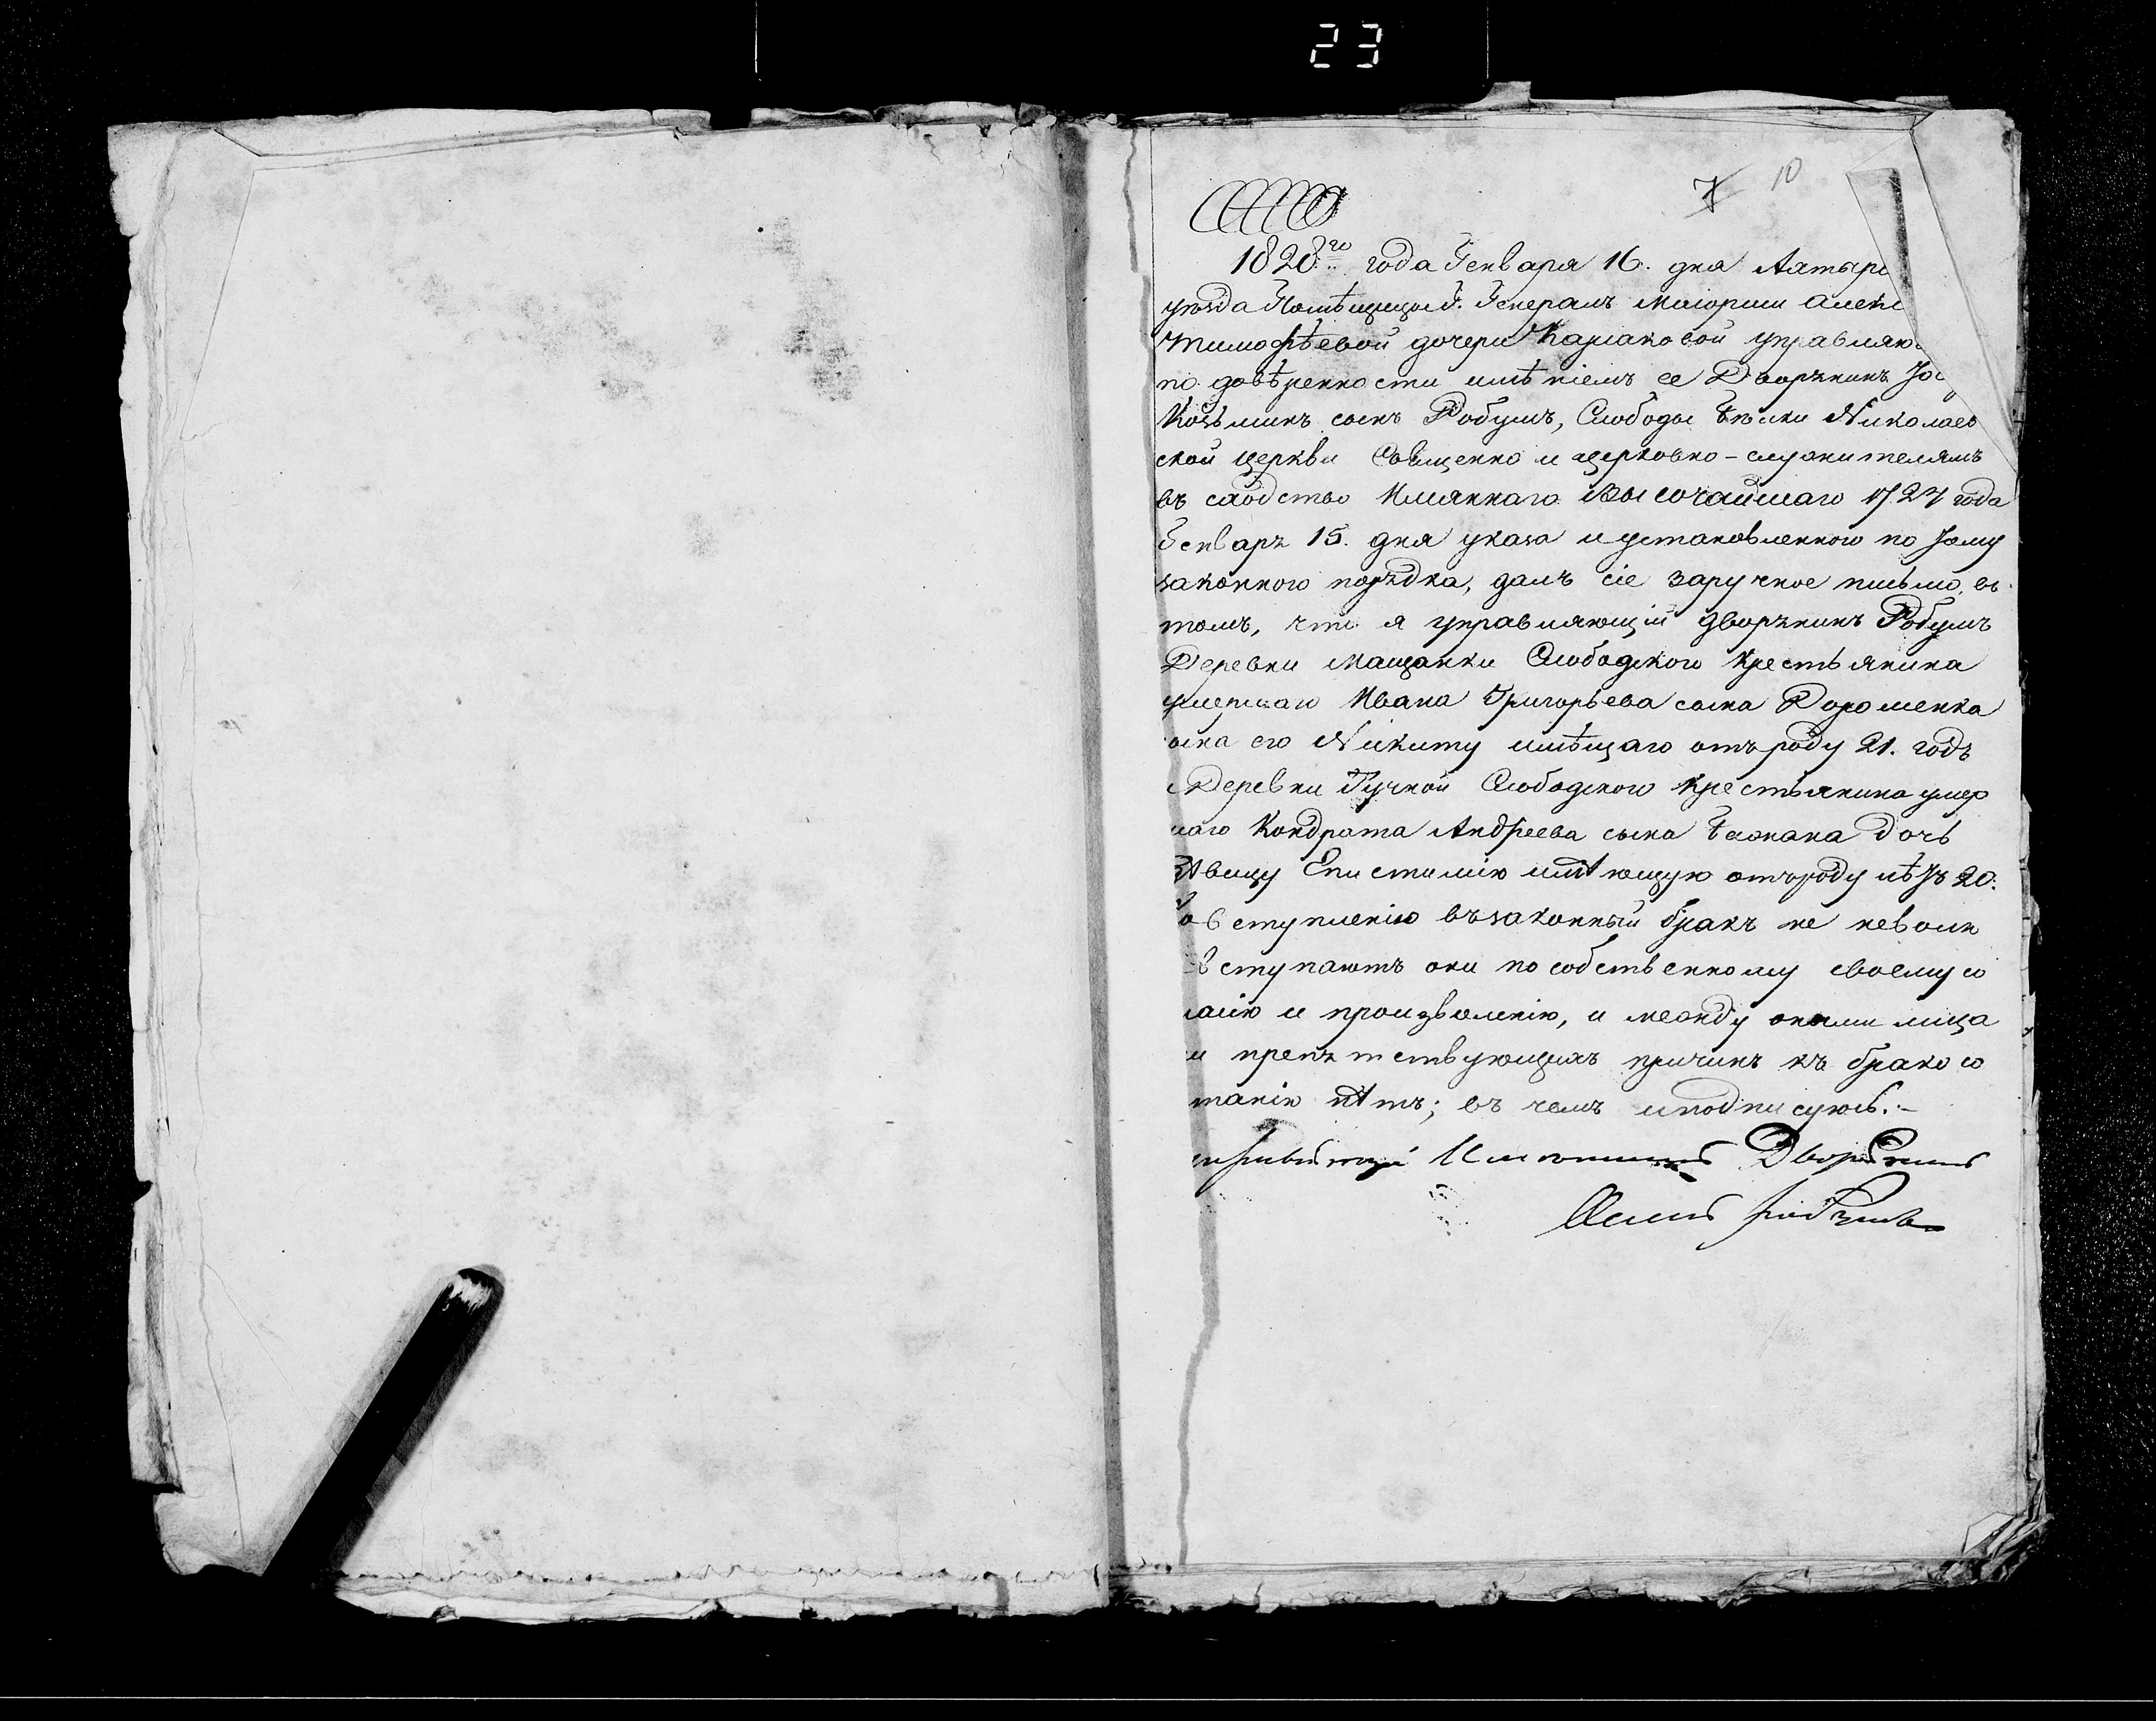 23
7 10
1828.го года Генваря 16. дня Ахтырс
уѣзда Помѣщицы Г. Генералъ Маіорши Алекс
Тимофѣевой дочери Карлаковой управляю
по довѣренности имѣніемъ ее Дворянинъ
Козьминъ сынъ Робушъ, Слободы Бѣлки Николаев
ской церкви Священно и церковно-служителямъ
въ слѣдствіе Имяннаго Высочайшаго 1724 года
Генваря 15. дня указа и установленного по сему
законного порядка, далъ сіе заручное письмо, въ
томъ, что я управляющій дворянинъ Робушъ
Деревни Мащанки Слободского крестьянина
умершаго Ивана Григорьева сына Дорошенка
сына его Никиту имѣющаго отъ роду 21. годъ
Деревни Тучной Слободского крестьянина умер
шаго Кондрата Андреева сына дочь
дѣвицу Епистимію имѣющую отъ роду лѣтъ 20.
ко вступленію въ законный бракъ не неволи
вступаютъ они по собственному своему со
ласію и произволенію, и между оными лица
и препятствующихъ причинъ къ брако со
танію нѣтъ; въ чемъ и подписуюсь.-
Имѣниемъ Дворянинъ